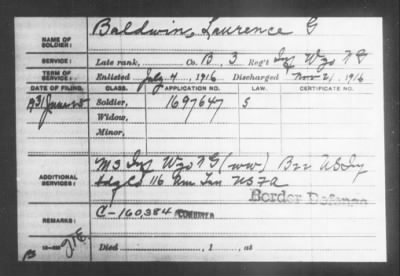 Baldwin, Laurence G
NAME OF SOLDIER:
SERVICE: Late rank, Co. B, 3 Reg't Inf Wyo N G
TERM OF SERVICE: Enlisted July 4, 1916 Discharged Nov 21, 1916
DATE OF FILING. CLASS. APPLICATION NO. LAW. CERTIFICATE NO.
1931 Soldier, 1697647 S
Widow,
Minor,
ADDITIONAL SERVICES: M 3 Inf Wyo N G (WW) B22 US Inf
Hdq Co 116 Am Tn US FA
Border Defense
REMARKS: C-160,384
Died , 1 , at